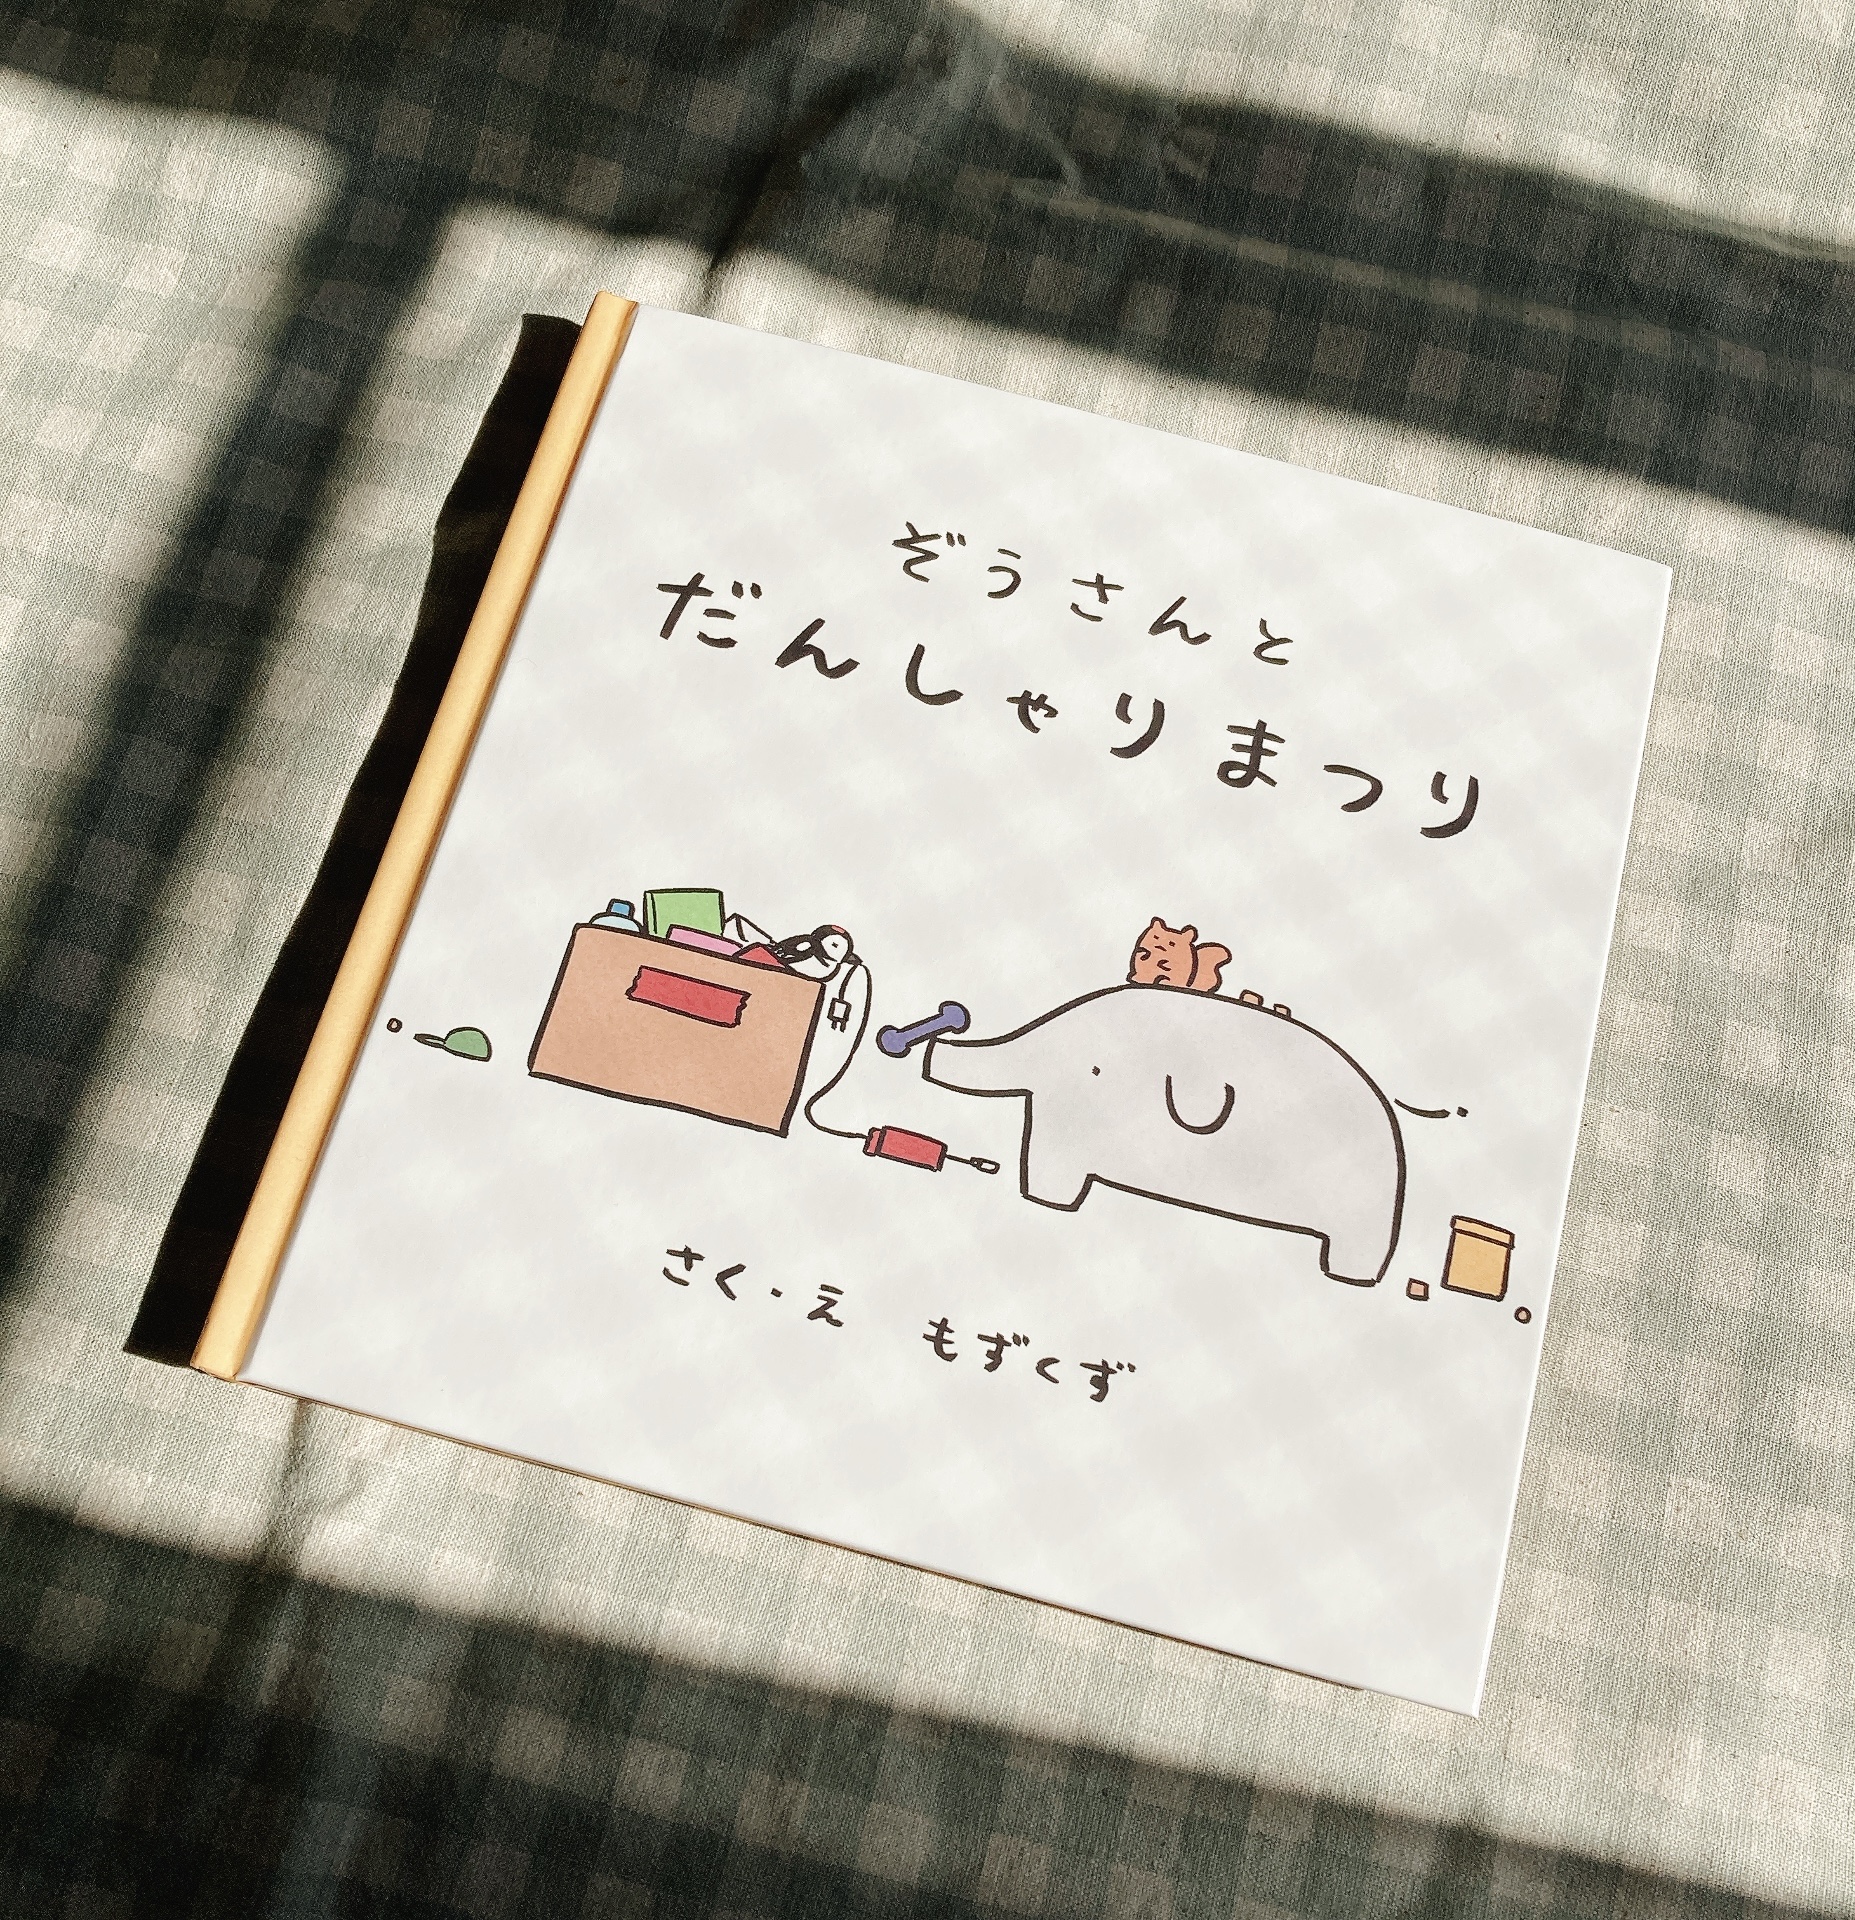 ぞうさんと
だんしゃりまつり
さく・え もずくず